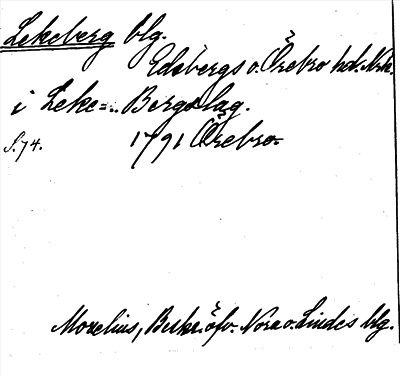 Lekeberg blg.
Edsbergs o. Örebro hd. Nrk.
i Leke=... Bergslag.
S. 74. 1791 Örebro.
Morelius, Beskr. öfv. Nora o. Lindes blg.